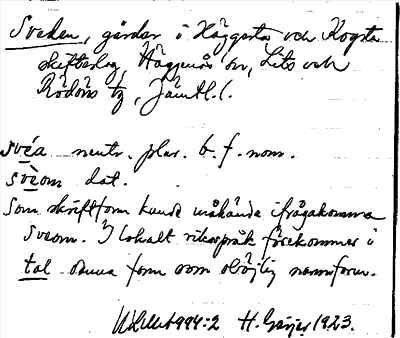 Sveden, gårdar i Häggsta och Kogsta
skifteslag, Häggenås sn, Lits och
Rödöns tg, Jämtl. l.
svéa neutr. plur. b. f. nom.
svèom dat.
Som skriftform kunde måhända ifrågakomma
Sveom. I lokalt riksspråk förekommer i
tal denna form som oböjlig namnform.
H. Geijer 1923.